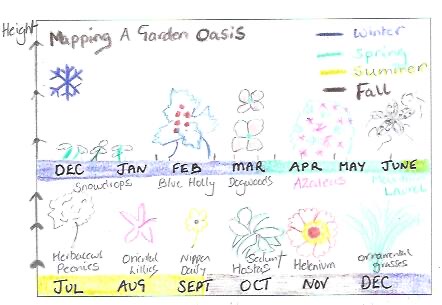 Height
Mapping A Garden Oasis
Winter
Spring
Summer
Fall
DEC JAN FEB MAR APR MAY JUNE
Snowdrops Blue Holly Dogwoods Azaleas Laurel
Herbaceous Peonies
Oriental Lillies
Hostas
Helenium
ornamental grasses
JUL AUG SEPT OCT NOV DEC